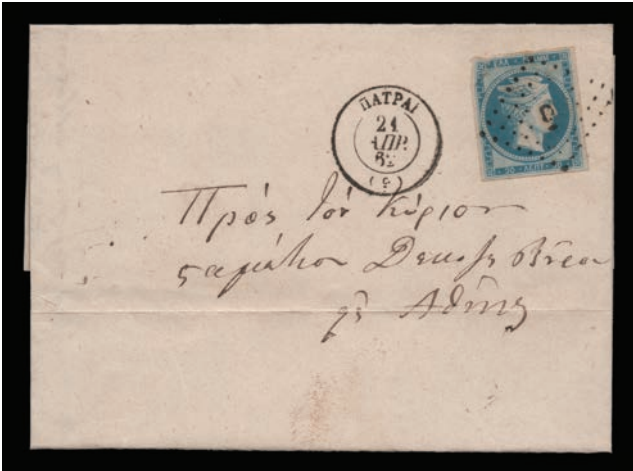 ΠΑΤΡΑΙ
21
ΑΠΡ.
62
(9)
ΕΛΛ
20 ΛΕΠΤ
9
Πρὸς Τὸν Κύριον
Σταμάτιον Δεκόζη Βούρον
εἰς Ἀθήνας